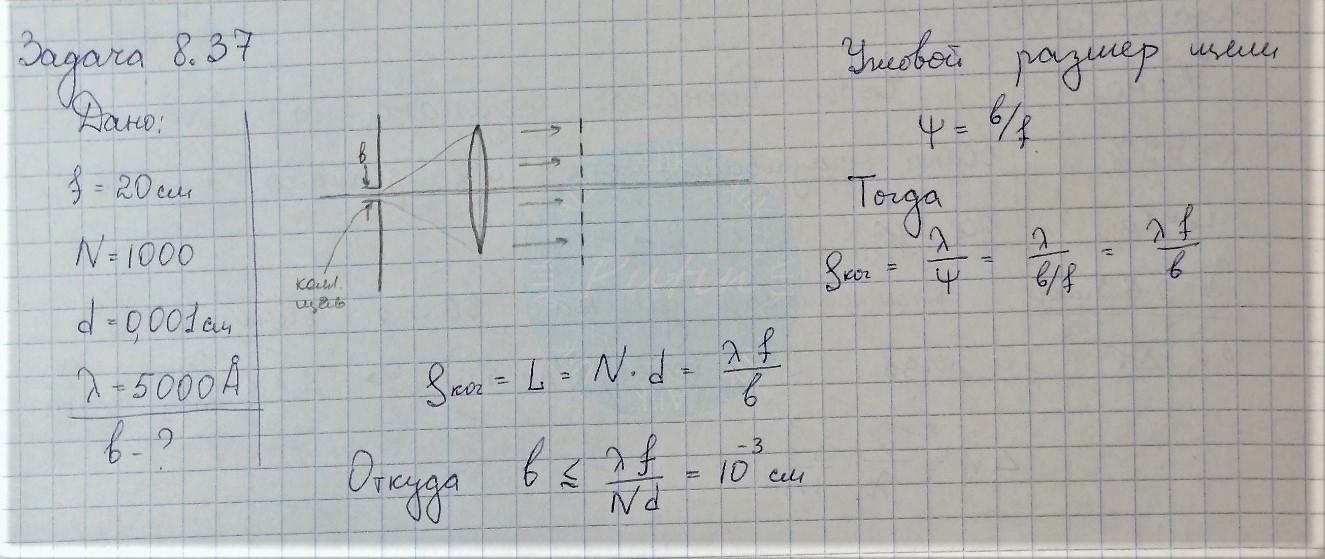 Задача 8.37
Дано:
f = 20 см
N = 1000
d = 0,001 см
λ = 5000 Å
b - ?
b
колл.
щель
Угловой размер щели
ψ = b/f
Тогда
ρког = λ/ψ = λ/(b/f) = λf/b
ρког = L = N · d = λf/b
Откуда b ≲ λf/Nd = 10⁻³ см